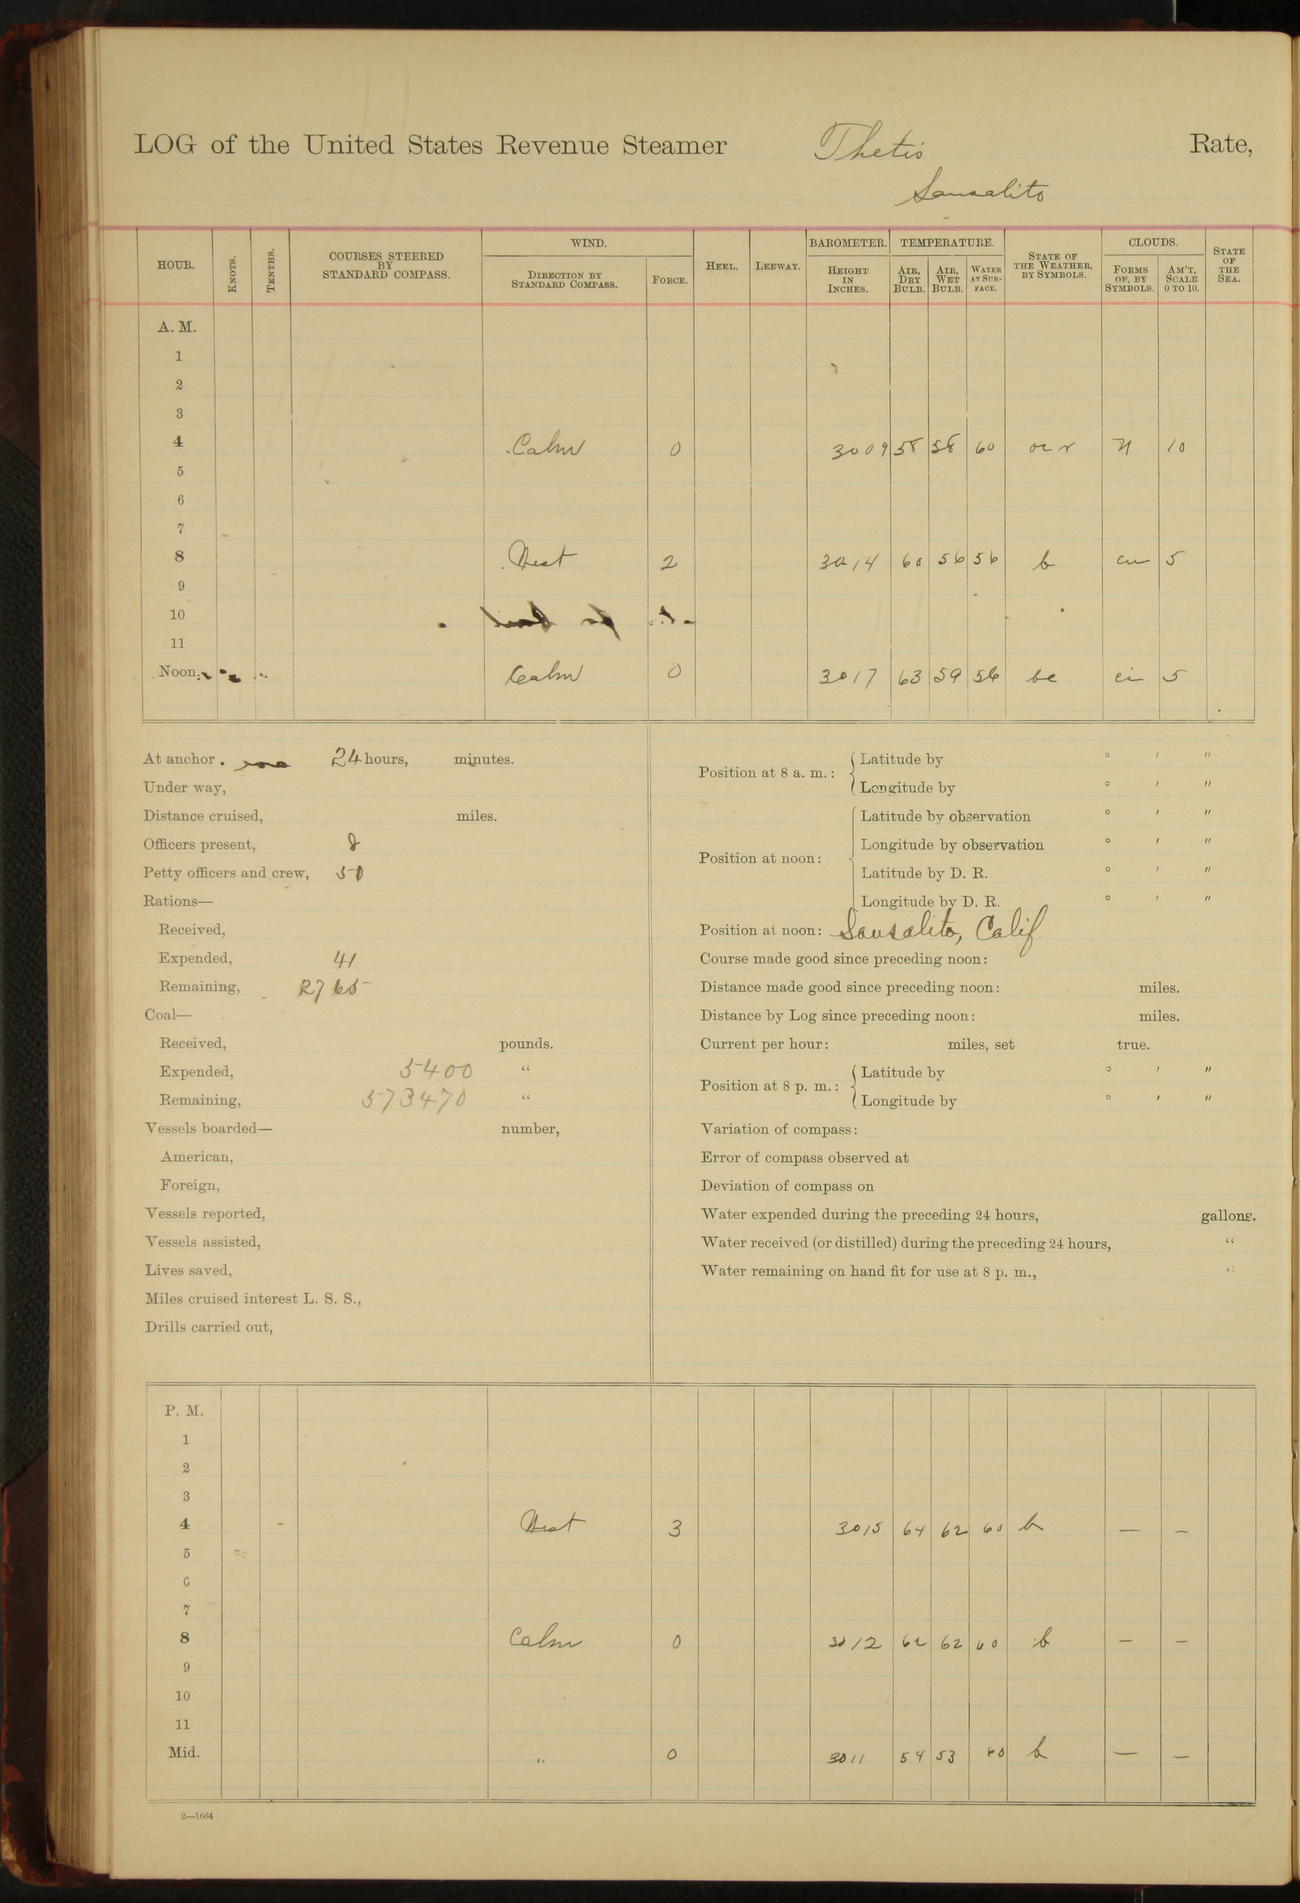 LOG of the United States Revenue Steamer Thetis Rate,
Sausalito
HOUR. KNOTS. TENTHS. COURSES STEERED BY STANDARD COMPASS. WIND. DIRECTION BY STANDARD COMPASS. FORCE. HEEL. LEEWAY. BAROMETER. HEIGHT IN INCHES. TEMPERATURE. AIR, DRY BULB. AIR, WET BULB. WATER AT SURFACE. STATE OF THE WEATHER, BY SYMBOLS. CLOUDS. FORMS OF, BY SYMBOLS. AM'T, SCALE 0 TO 10. STATE OF THE SEA.
A. M.
1
2
3
4 Calm 0 3009 58 58 60 ocr N 10
5
6
7
8 West 2 3014 60 56 56 b cu 5
9
10
11
Noon. Calm 0 3017 63 59 56 bc ci 5
At anchor 24 hours, minutes.
Under way,
Distance cruised, miles.
Officers present, 8
Petty officers and crew, 50
Rations—
Received,
Expended, 41
Remaining, 2765
Coal—
Received, pounds.
Expended, 5400 “
Remaining, 573470 “
Vessels boarded— number,
American,
Foreign,
Vessels reported,
Vessels assisted,
Lives saved,
Miles cruised interest L. S. S.,
Drills carried out,
Position at 8 a. m.: Latitude by ° ′ ″
Longitude by ° ′ ″
Position at noon: Latitude by observation ° ′ ″
Longitude by observation ° ′ ″
Latitude by D. R. ° ′ ″
Longitude by D. R. ° ′ ″
Position at noon: Sausalito, Calif
Course made good since preceding noon:
Distance made good since preceding noon: miles.
Distance by Log since preceding noon: miles.
Current per hour: miles, set true.
Position at 8 p. m.: Latitude by ° ′ ″
Longitude by ° ′ ″
Variation of compass:
Error of compass observed at
Deviation of compass on
Water expended during the preceding 24 hours, gallons.
Water received (or distilled) during the preceding 24 hours, “
Water remaining on hand fit for use at 8 p. m., “
P. M.
1
2
3
4 West 3 3015 64 62 60 b — —
5
6
7
8 Calm 0 3012 62 62 60 b — —
9
10
11
Mid. " 0 3011 54 53 60 b — —
2—1664